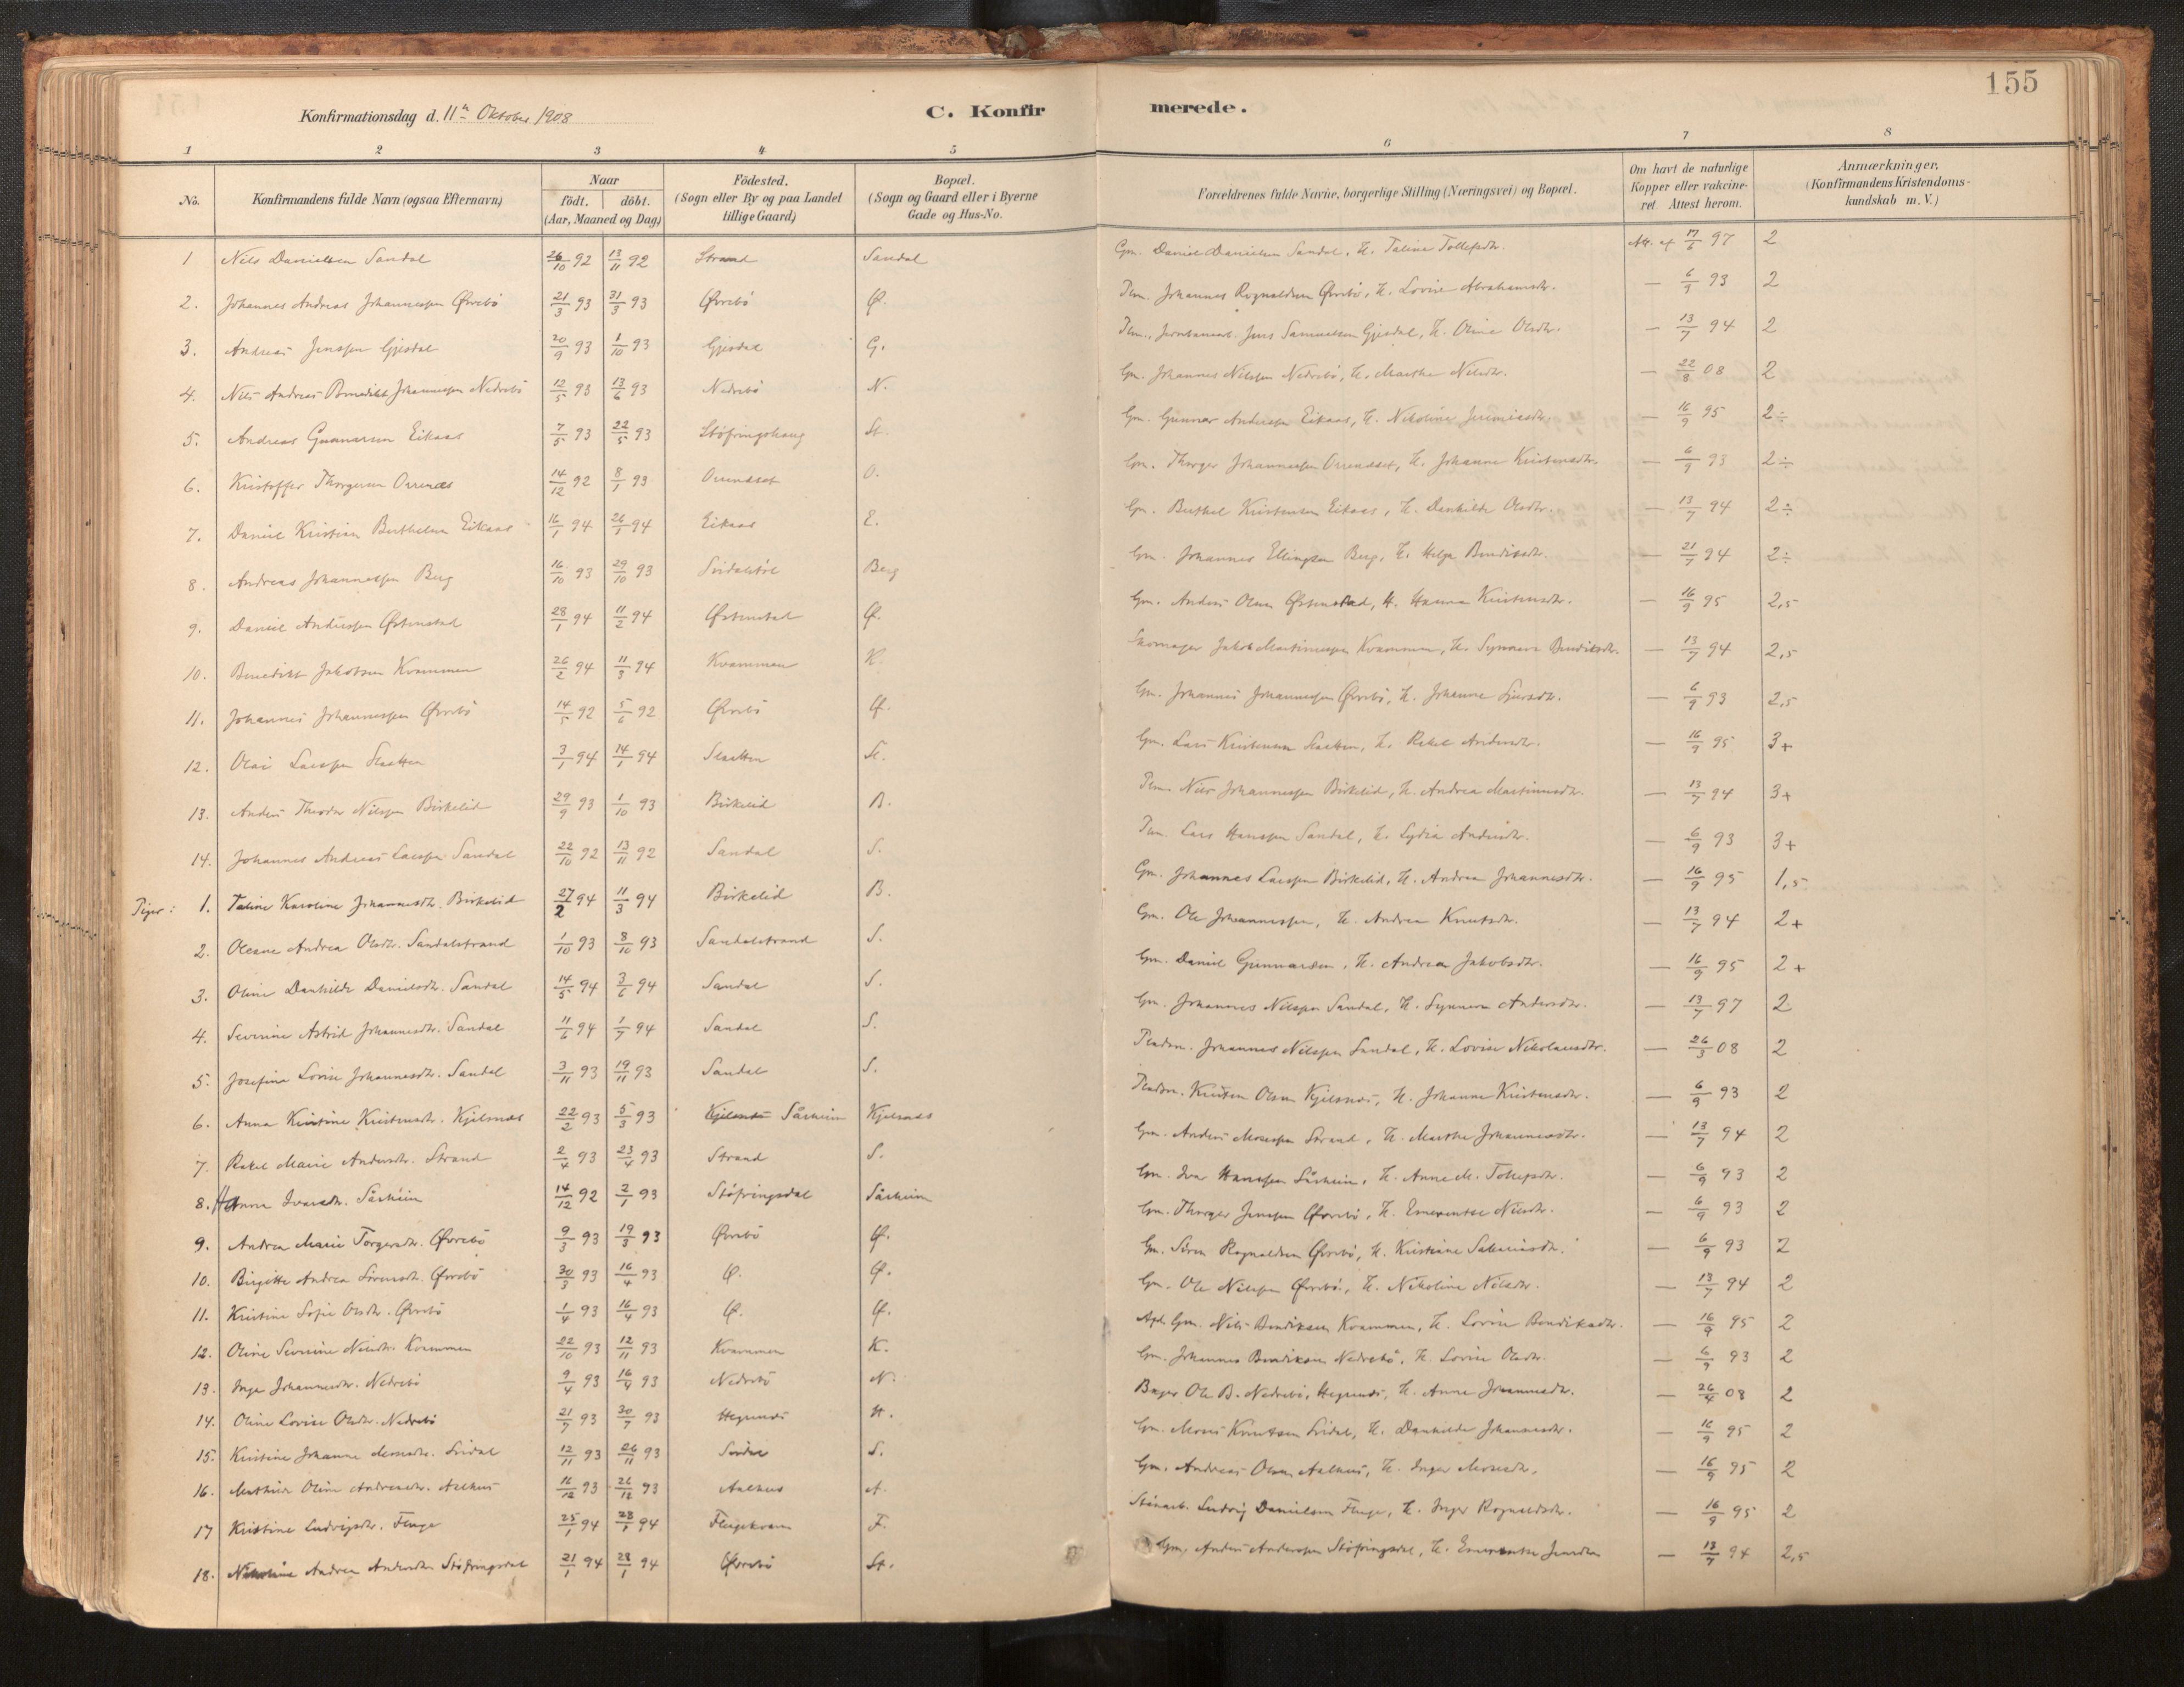 155
Konfirmationsdag d. 11te Oktober 1908
C. Konfirmerede.
1 2 3 4 5 6 7 8
No. Konfirmandens fulde Navn (ogsaa Efternavn) Naar født. døbt. (Aar, Maaned og Dag) Födested. (Sogn eller By og paa Landet tillige Gaard) Bopæl. (Sogn og Gaard eller i Byerne Gade og Hus-No. Forældrenes fulde Navne, borgerlige Stilling (Næringsvei) og Bopæl. Om havt de naturlige Kopper eller vakcineret. Attest herom. Anmærkninger. (Konfirmandens Kristendomskundskab m. V.)
1 Nils Danielsen Sandal 26/10 92 13/11 92 Strand Sandal Gm. Daniel Danielsen Sandal, H. Taline Tollefsdtr. Att. af 17/6 97 2
2. Johannes Andreas Johannessen Øvrebö 21/3 93 31/3 93 Øvrebö Ø. Plm. Johannes Rognaldsen Øvrebö, H. Lovise Abrahamsdtr. — 6/9 93 2
3. Andreas Jenssen Gjesdal 20/9 93 1/10 93 Gjesdal G. Plm., Jernbanearb. Jens Samuelsen Gjesdal, H. Oline Olsdtr. — 13/7 94 2
4. Nils Andreas Benedikt Johannessen Nedrebö 12/5 93 13/6 93 Nedrebö N. Gm. Johannes Nilssen Nedrebö, H. Marthe Nilsdtr. — 22/8 08 2
5. Andreas Gunnarsen Eikaas 7/5 93 22/5 93 Støfringshaug St. Gm. Gunnar Anderssen Eikaas, H. Nikoline Jeremiasdtr. — 16/9 95 2÷
6. Kristoffer Thorgersen Orrenæs 14/12 92 8/1 93 Orrenæset O. Gm. Thorger Johannessen Orrenæset, H. Johanne Kristensdtr. — 6/9 93 2÷
7. Daniel Kristian Berthelsen Eikaas 16/1 94 26/1 94 Eikaas E. Gm. Berthel Kristensen Eikaas, H. Dankilde Olsdtr. — 13/7 94 2÷
8. Andreas Johannessen Berg 16/10 93 29/10 93 Svidalstöl Berg Gm. Johannes Ellingsen Berg, H. Helga Bendiksdtr. — 21/7 94 2÷
9. Daniel Anderssen Østenstad 28/1 94 11/2 94 Østenstad Ø. Gm. Anders Olsen Østenstad, H. Hanna Kristensdtr. — 16/9 95 2,5
10. Benedikt Jakobsen Kvammen 26/2 94 11/3 94 Kvammen K. Skomager Jakob Martinussen Kvammen, H. Synneva Bendiksdtr. — 13/7 94 2,5
11. Johannes Johannessen Øvrebö 14/5 92 5/6 92 Øvrebö Ø. Gm. Johannes Johannessen Øvrebö, H. Johanne Sjursdtr. — 6/9 93 2,5
12. Olai Larssen Slaatten 3/1 94 14/1 94 Slaatten Sl. Gm. Lars Kristensen Slaatten, H. Rakel Andersdtr. — 16/9 95 3+
13. Anders Theodor Nilssen Birkelid 29/9 93 1/10 93 Birkelid B. Plm. Nils Johannessen Birkelid, H. Andrea Martinusdtr. — 13/7 94 3+
14. Johannes Andreas Larssen Sandal 22/10 92 13/11 92 Sandal S. Plm. Lars Hanssen Sandal, H. Lydia Andersdtr. — 6/9 93 3+
Piger: 1. Taline Karoline Johannesdtr. Birkelid 27/2 94 11/3 94 Birkelid B. Gm. Johannes Larssen Birkelid, H. Andrea Johannesdtr. — 16/9 95 1,5
2. Oleane Andrea Olsdtr. Sandalstrand 1/10 93 8/10 93 Sandalstrand S. Gm. Ole Johannessen, H. Andrea Knutsdtr. — 13/7 94 2+
3. Oline Dankilde Danielsdtr. Sandal 14/5 94 3/6 94 Sandal S. Gm. Daniel Gunnarsen, H. Andrea Jakobsdtr. — 16/9 95 2+
4. Severine Astrid Johannesdtr. Sandal 11/6 94 1/7 94 Sandal S. Gm. Johannes Nilssen Sandal, H. Synneva Andersdtr. — 13/7 97 2
5. Josefine Lovise Johannesdtr. Sandal 3/11 93 19/11 93 Sandal S. Pladsm. Johannes Nilssen Sandal, H. Lovise Nikolaisdtr. — 26/3 08 2
6. Anna Kristine Kristensdtr. Kjelsnæs 22/2 93 5/3 93 Kjelsnæs Sårheim Kjelsnæs Pladsm. Kristen Olsen Kjelsnæs, H. Johanne Kristensdtr. — 6/9 93 2
7. Rakel Marie Andersdtr. Strand 2/4 93 23/4 93 Strand S. Gm. Anders Mosessen Strand, H. Marthe Johannesdtr. — 13/7 94 2
8. Anna Ivarsdtr. Sårheim 14/12 92 2/1 93 Støfringsdal Sårheim Gm. Ivar Hanssen Sårheim, H. Anne M. Tollefsdtr. — 6/9 93 2
9. Andrea Marie Torgersdtr. Øvrebö 9/3 93 19/3 93 Øvrebö Ø. Gm. Thorger Jenssen Øvrebö, H. Emerentse Nilsdtr. — 6/9 93 2
10. Birgitte Andrea Sörensdtr. Øvrebö 30/3 93 16/4 93 Ø. Ø. Gm. Sören Rognaldsen Øvrebö, H. Kristiane Salamonsdtr. — 6/9 93 2
11. Kristine Sofie Olsdtr. Øvrebö 1/4 93 16/4 93 Ø. Ø. Gm. Ole Nilssen Øvrebö, H. Nikoline Nilsdtr. — 13/7 94 2
12. Oline Severine Nilsdtr. Kvammen 22/10 93 12/11 93 Kvammen K. Afd. Gm. Nils Bendiksen Kvammen, H. Lovise Bendiksdtr. — 16/9 95 2
13. Inga Johannesdtr. Nedrebö 9/4 93 16/4 93 Nedrebö N. Gm. Johannes Bendiksen Nedrebö, H. Lovise Olsdtr. — 6/9 93 2
14. Oline Lovise Olsdtr. Nedrebö 21/7 93 30/7 93 Hegrenæs H. Bager Ole B. Nedrebö, Hegrenæs, H. Anne Johannesdtr. — 26/4 08 2
15. Kristine Johanne Mosesdtr. Svidal 12/11 93 26/11 93 Svidal S. Gm. Moses Knutsen Svidal, H. Dankilde Johannesdtr. — 16/9 95 2
16. Mathilde Oline Andreasdtr. Aalhus 16/12 93 26/12 93 Aalhus A. Gm. Andreas Olsen Aalhus, H. Inger Mosesdtr. — 16/9 95 2
17 Kristine Ludvigsdtr. Fluge 25/1 94 28/1 94 Flugekvam F. Stenarb. Ludvig Danielsen Fluge, H. Inger Rognaldsdtr. — 16/9 95 2
18. Nikoline Andrea Andersdtr. Støfringsdal 21/1 94 28/1 94 Øvrebö St. Gm. Anders Anderssen Støfringsdal, H. Emerentse Jensdtr. — 13/7 94 2,5